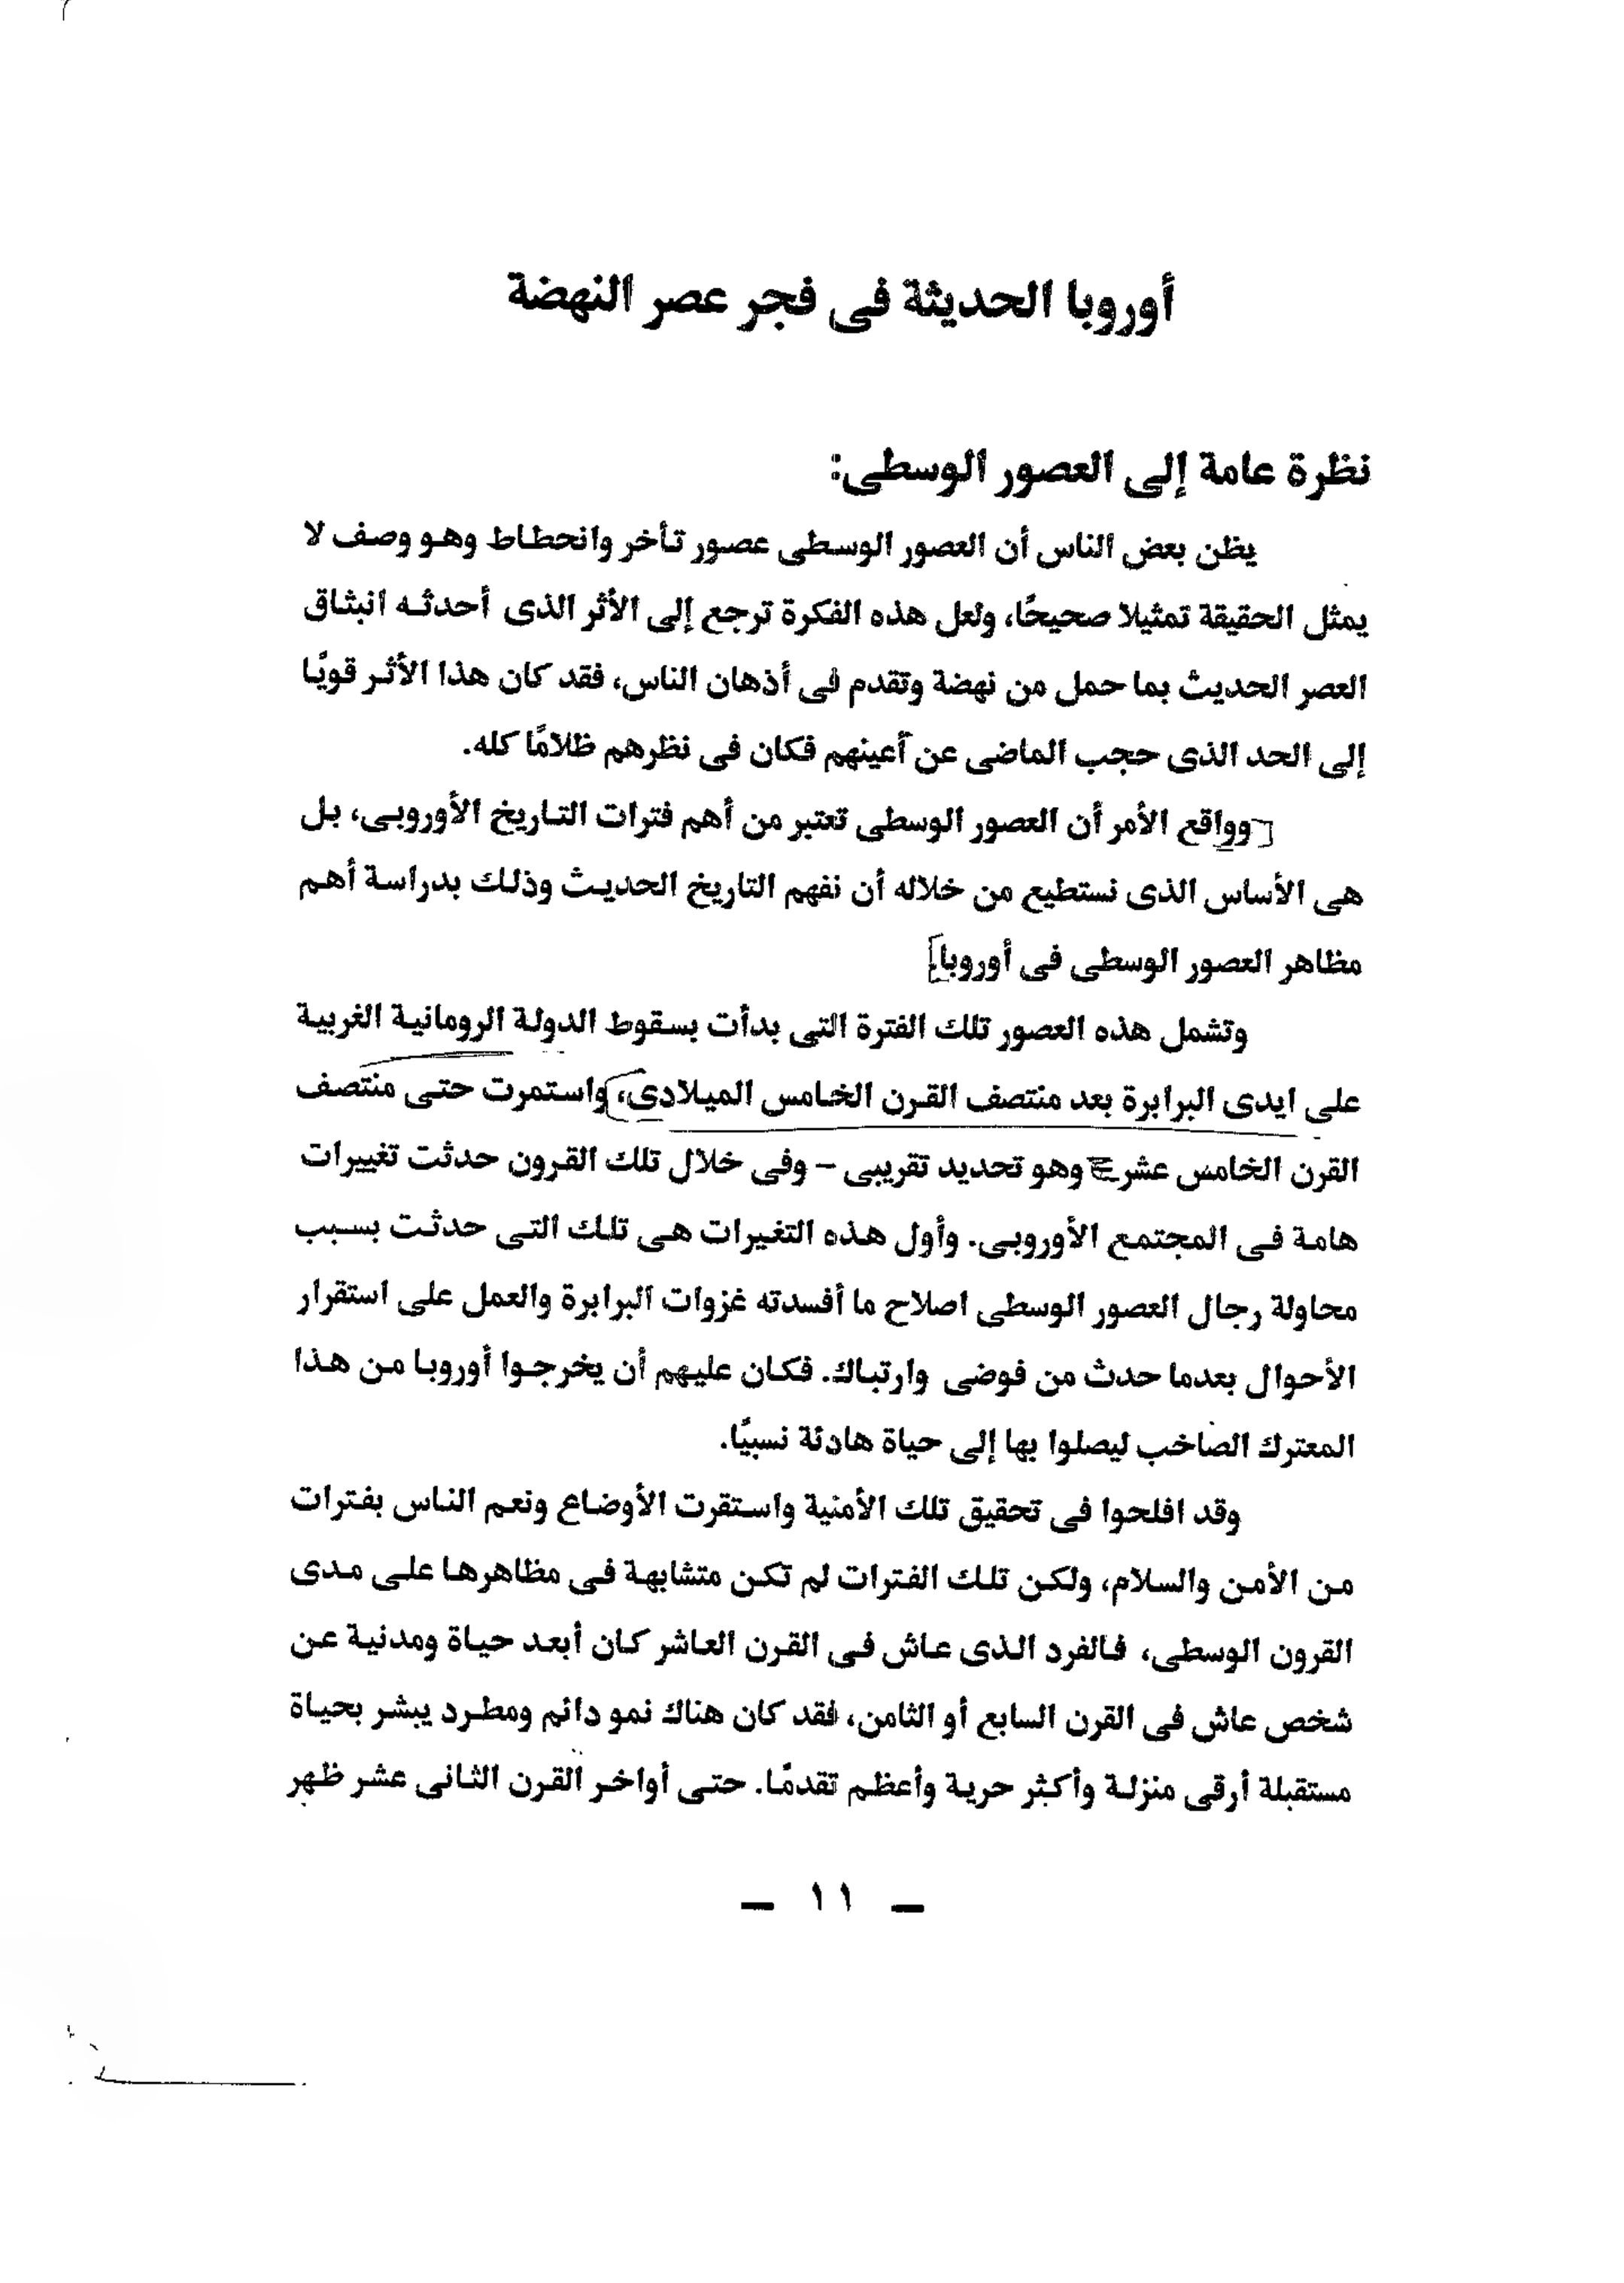 أوروبا الحديثة فى فجر عصر النهضة
نظرة عامة إلى العصور الوسطى:
يظن بعض الناس أن العصور الوسطى عصور تأخر وانحطاط وهو وصف لا
يمثل الحقيقة تمثيلا صحيحًا، ولعل هذه الفكرة ترجع إلى الأثر الذى أحدثه انبثاق
العصر الحديث بما حمل من نهضة وتقدم فى أذهان الناس، فقد كان هذا الأثر قويًا
إلى الحد الذى حجب الماضى عن أعينهم فكان فى نظرهم ظلامًا كله.
[وواقع الأمر أن العصور الوسطى تعتبر من أهم فترات التاريخ الأوروبى، بل
هى الأساس الذى نستطيع من خلاله أن نفهم التاريخ الحديث وذلك بدراسة أهم
مظاهر العصور الوسطى فى أوروبا]
وتشمل هذه العصور تلك الفترة التى بدأت بسقوط الدولة الرومانية الغربية
على ايدى البرابرة بعد منتصف القرن الخامس الميلادى، واستمرت حتى منتصف
القرن الخامس عشر – وهو تحديد تقريبى – وفى خلال تلك القرون حدثت تغييرات
هامة فى المجتمع الأوروبى. وأول هذه التغيرات هى تلك التى حدثت بسبب
محاولة رجال العصور الوسطى اصلاح ما أفسدته غزوات البرابرة والعمل على استقرار
الأحوال بعدما حدث من فوضى وارتباك. فكان عليهم أن يخرجوا أوروبا من هذا
المعترك الصاخب ليصلوا بها إلى حياة هادئة نسبيًا.
وقد افلحوا فى تحقيق تلك الأمنية واستقرت الأوضاع ونعم الناس بفترات
من الأمن والسلام، ولكن تلك الفترات لم تكن متشابهة فى مظاهرها على مدى
القرون الوسطى، فالفرد الذى عاش فى القرن العاشر كان أبعد حياة ومدنية عن
شخص عاش فى القرن السابع أو الثامن، فقد كان هناك نمو دائم ومطرد يبشر بحياة
مستقبلة أرقى منزلة وأكثر حرية وأعظم تقدمًا. حتى أواخر القرن الثانى عشر ظهر
– ١١ –